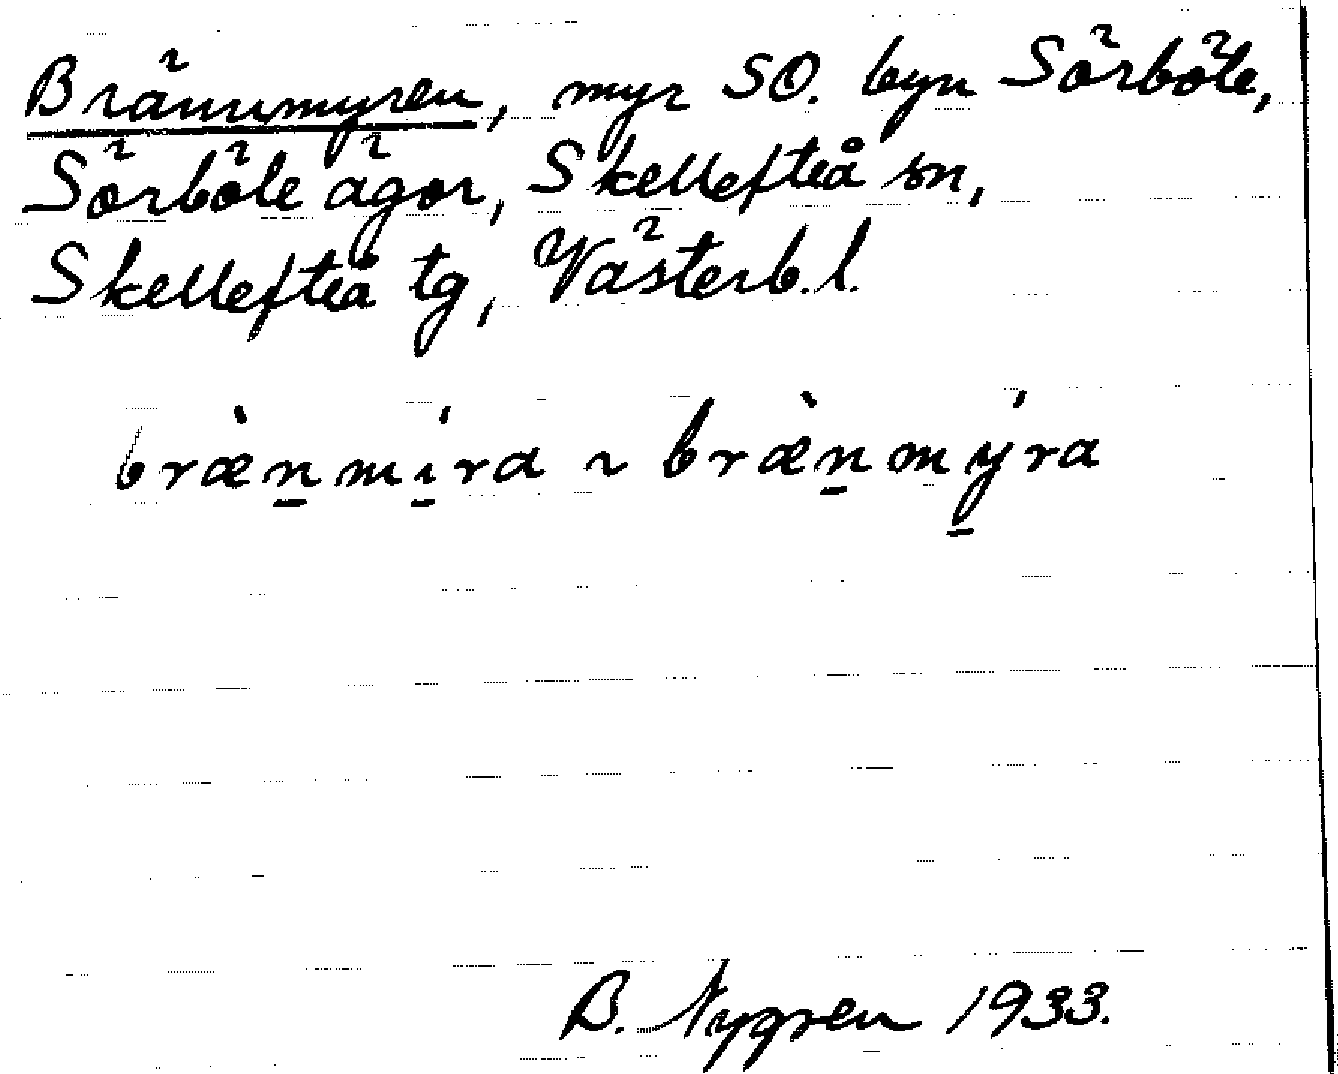 Brännmyren, myr SO. byn Sörböle,
Sörböle ägor, Skellefteå sn,
Skellefteå tg, Västerb.l.
bræ̀n̠mí̠ra ~ bræ̀n̠mý̠ra
B. Nygren 1933.